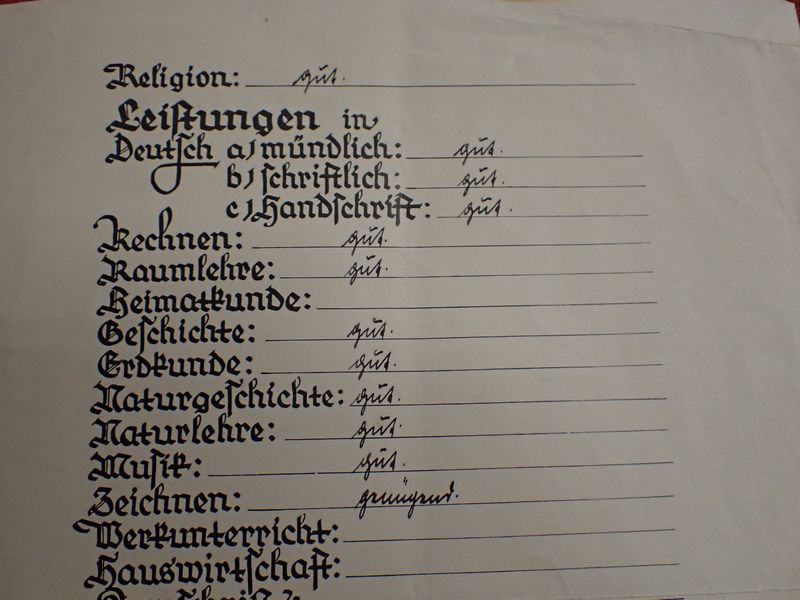 Religion: gut.
Leistungen in
Deutsch a) mündlich: gut.
b) schriftlich: gut.
c) Handschrift: gut.
Rechnen: gut.
Raumlehre: gut.
Heimatkunde:
Geschichte: gut.
Erdkunde: gut.
Naturgeschichte: gut.
Naturlehre: gut.
Musik: gut.
Zeichnen: genügend.
Werkunterricht:
Hauswirtschaft: